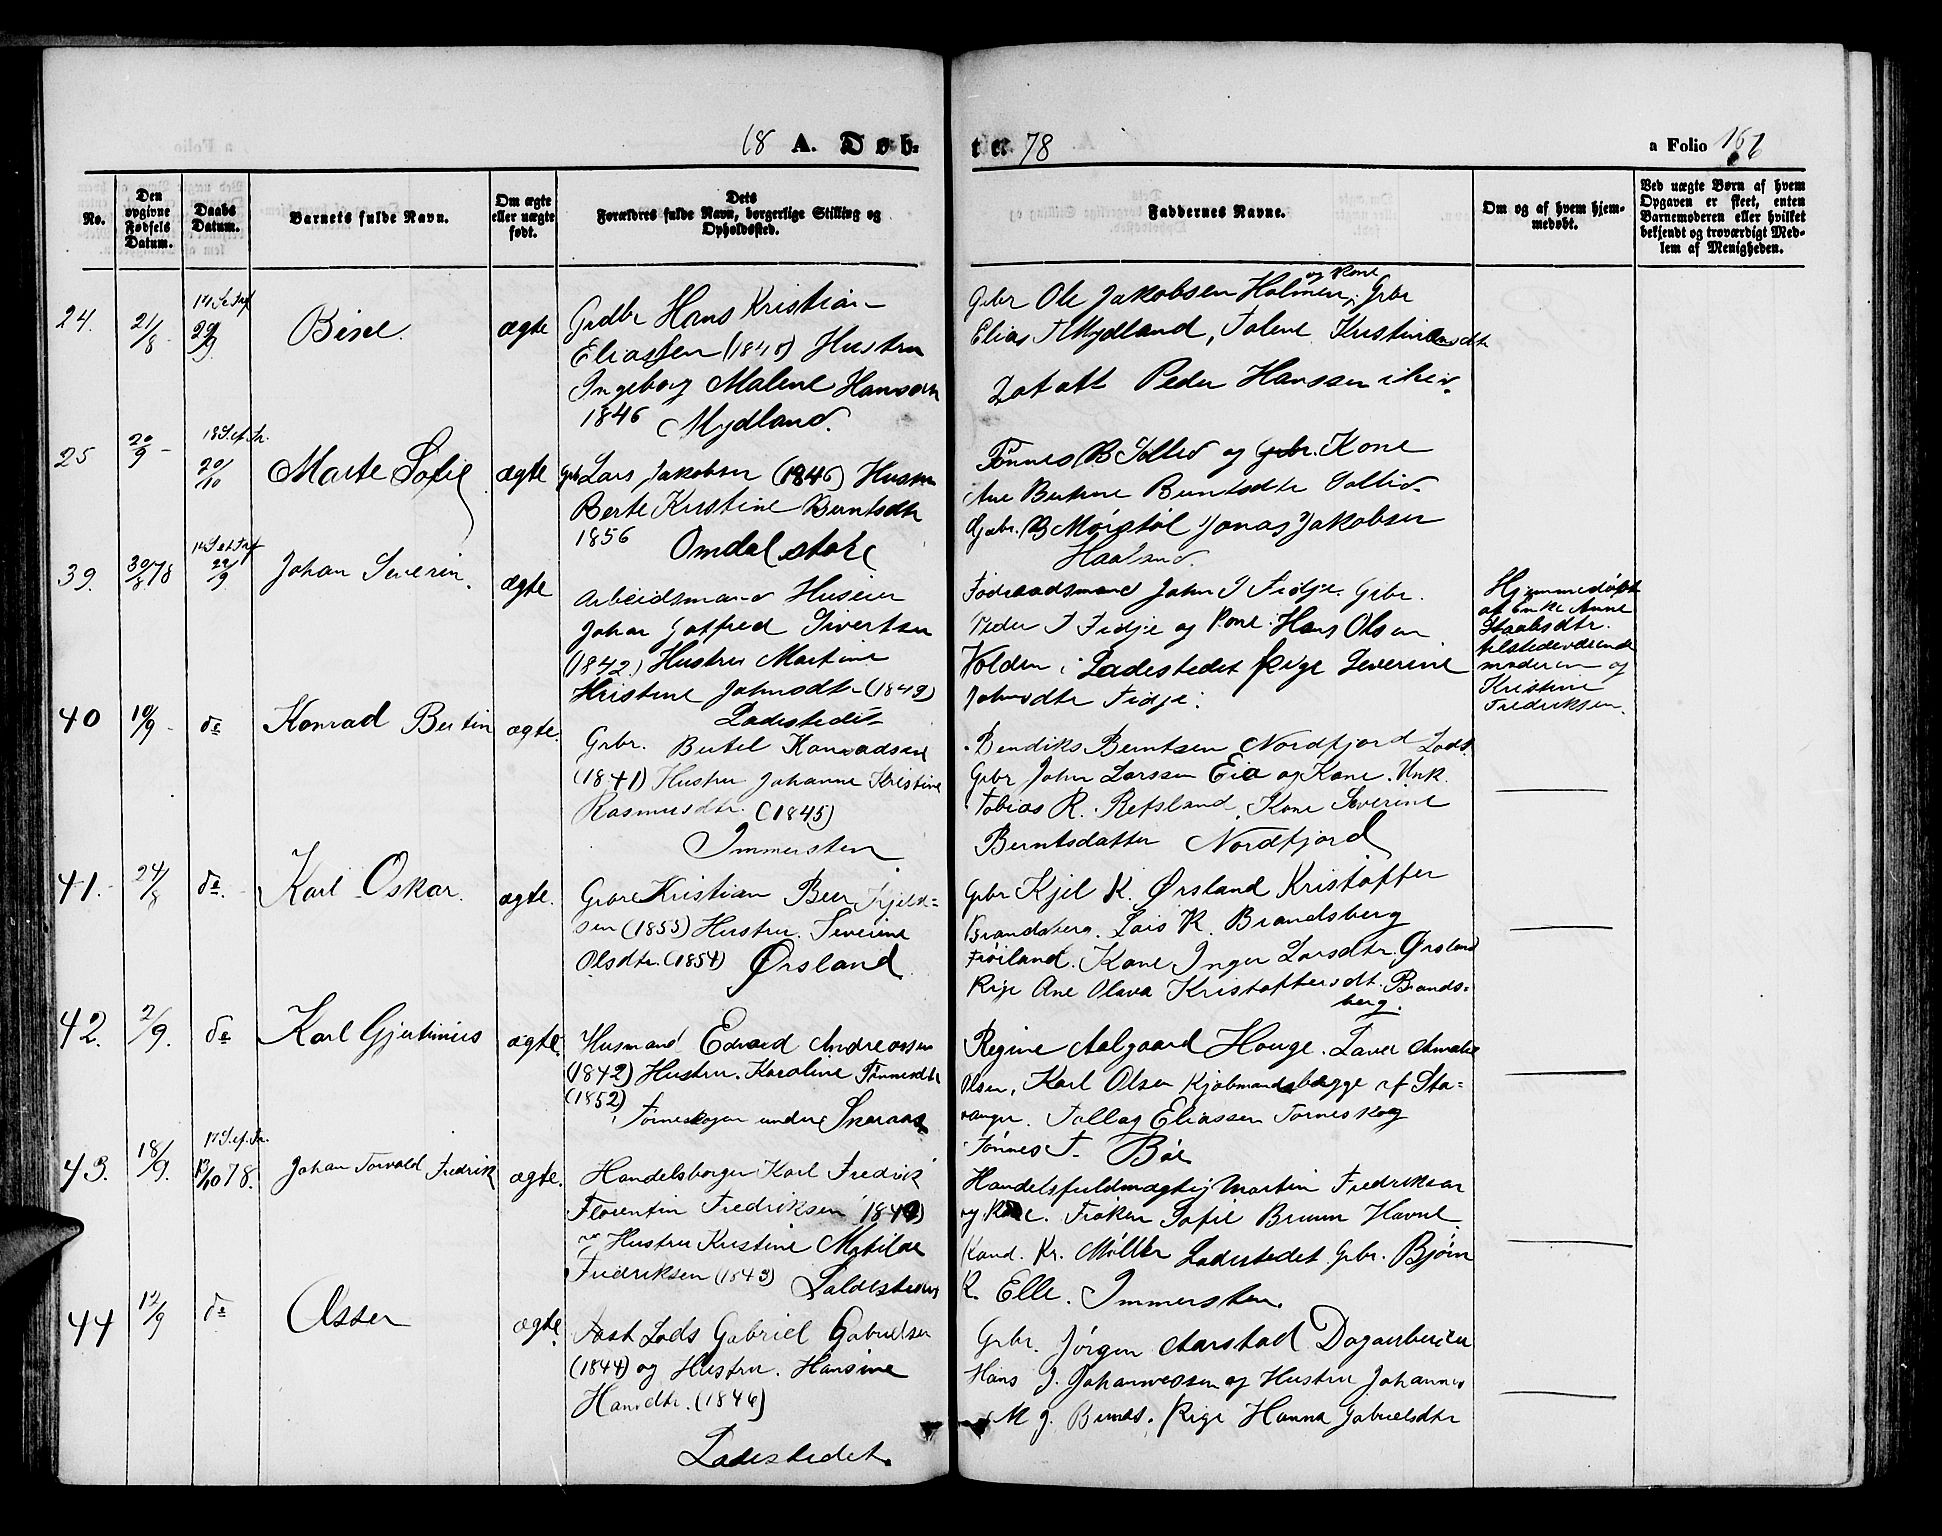 18 A. Døb-
te. 78
a Folio 166
No.
Den opgivne Fødsels Datum.
Daabs Datum.
Barnets fulde Navn.
Om ægte eller uægte født.
Dets Forældres fulde Navn, borgerlige Stilling og Opholdssted.
Faddernes Navne.
Om og af hvem hjem-medøbt.
Ved uægte Børn af hvem Opgaven er skeet, enten Barnemoderen eller hvilket bekjendt og troværdigt Med-lem af Menigheden.
24. 21/8 14 S e Trf 22/9 ægte
Hans Kristian
Eliassen (1845) Hustru
Ingeborg Malene Hansdtr
1846 Mydland.
Gbr Ole Jakobsen Holmen og Kone, Gbr
Elias T Mydland, Tolene
Peder Hanssen
25 20/9 18 S. ef. Tr. 20/10 Marte Sofie ægte
Gbr Lars Jakobsen (1846) Hustru
Berte Kristine Berntsdtr
1856 Omdal store
Tønnes B Sollid og Kone
Ane Berntsdtr Sollid
Gbr. B Mørstøl Jonas Jakobsen
Haaland.
39. 30/8 78 14 S et Trf 22/9 Johan Severin. ægte
Arbeidsmand Huseier
Johan Gotfred Sivertsen
(1842) Hustru Martine
Kristine Johnsdtr (1849)
Ladestedet
Føderaadsmand John J Fidje. Gbr.
Peder J Fidje og Kone. Hans Olsen
Volden i Ladestedet Pige Severine
Johnsdtr Fidje.
Hjemmedøbt
af Enke Anne
tilstedeværende
moderen og
Kristine
Fredriksen.
40 10/9 do Konrad Bertin ægte.
Gbr. Bertel Konradsen
(1841) Hustru Johanne Kristine
Rasmusdtr. (1845)
Immersten
Bendiks Berntsen Nordfjord Lods.
Gbr John Larssen Eia og Kone. Unk.
Tobias R. Refsland, Kone Severine
Berntsdatter Nordfjord
41. 24/8 do. Karl Oskar. ægte.
Gbr Kristian Beer Kjels-
sen (1853) Hustru. Severine
Olsdtr. (1854) Ørsland
Gbr Kjel K. Ørsland Kristoffer
Brandsberg. Lars K. Brandsberg
Frøiland. Kone Inger Larsdtr. Ørsland
Pige Ane Olava Kristoffersdt. Brands-
berg.
42. 2/9. do Karl Gjertinius ægte.
Husmand Edvard Andreassen
(1842) Hustru. Karoline Tønnesdtr
(1852)
Torneskogen under
Regine Aalgaard Houge. Amalie
Olsen, Karl Olsen Kjøbmand begge af Sta-
vanger. Tollag Eliassen Torneskog
Tønnes T. Bøe
43. 18/9. 17 S. ef. Tr. 13/10 78. Johan Torvald Fredrik ægte.
Handelsborger Karl Fredrik
Florentin Fredriksen
Hustru Kristine Matilde
Fredriksen (1843) Ladestedet
Handelsfuldmægtig Martin Fredriksen
og Kone. Frøken Sofie Bruun Havne.
Kand. Kr. Møller Ladestedet. Gbr. Bjørn
R. Elle. Immersten.
44 12/9 do Asser ægte.
Fast Lods Gabriel Gabrielsen
(1844) og Hustru. Hansine
Hansdtr. (1846)
Ladestedet.
Gbr. Jørgen Aarstad Dagarbeider
Hans J. Johannessen og Hustru Johanne
M G. Pige Hanna Gabrielsdtr